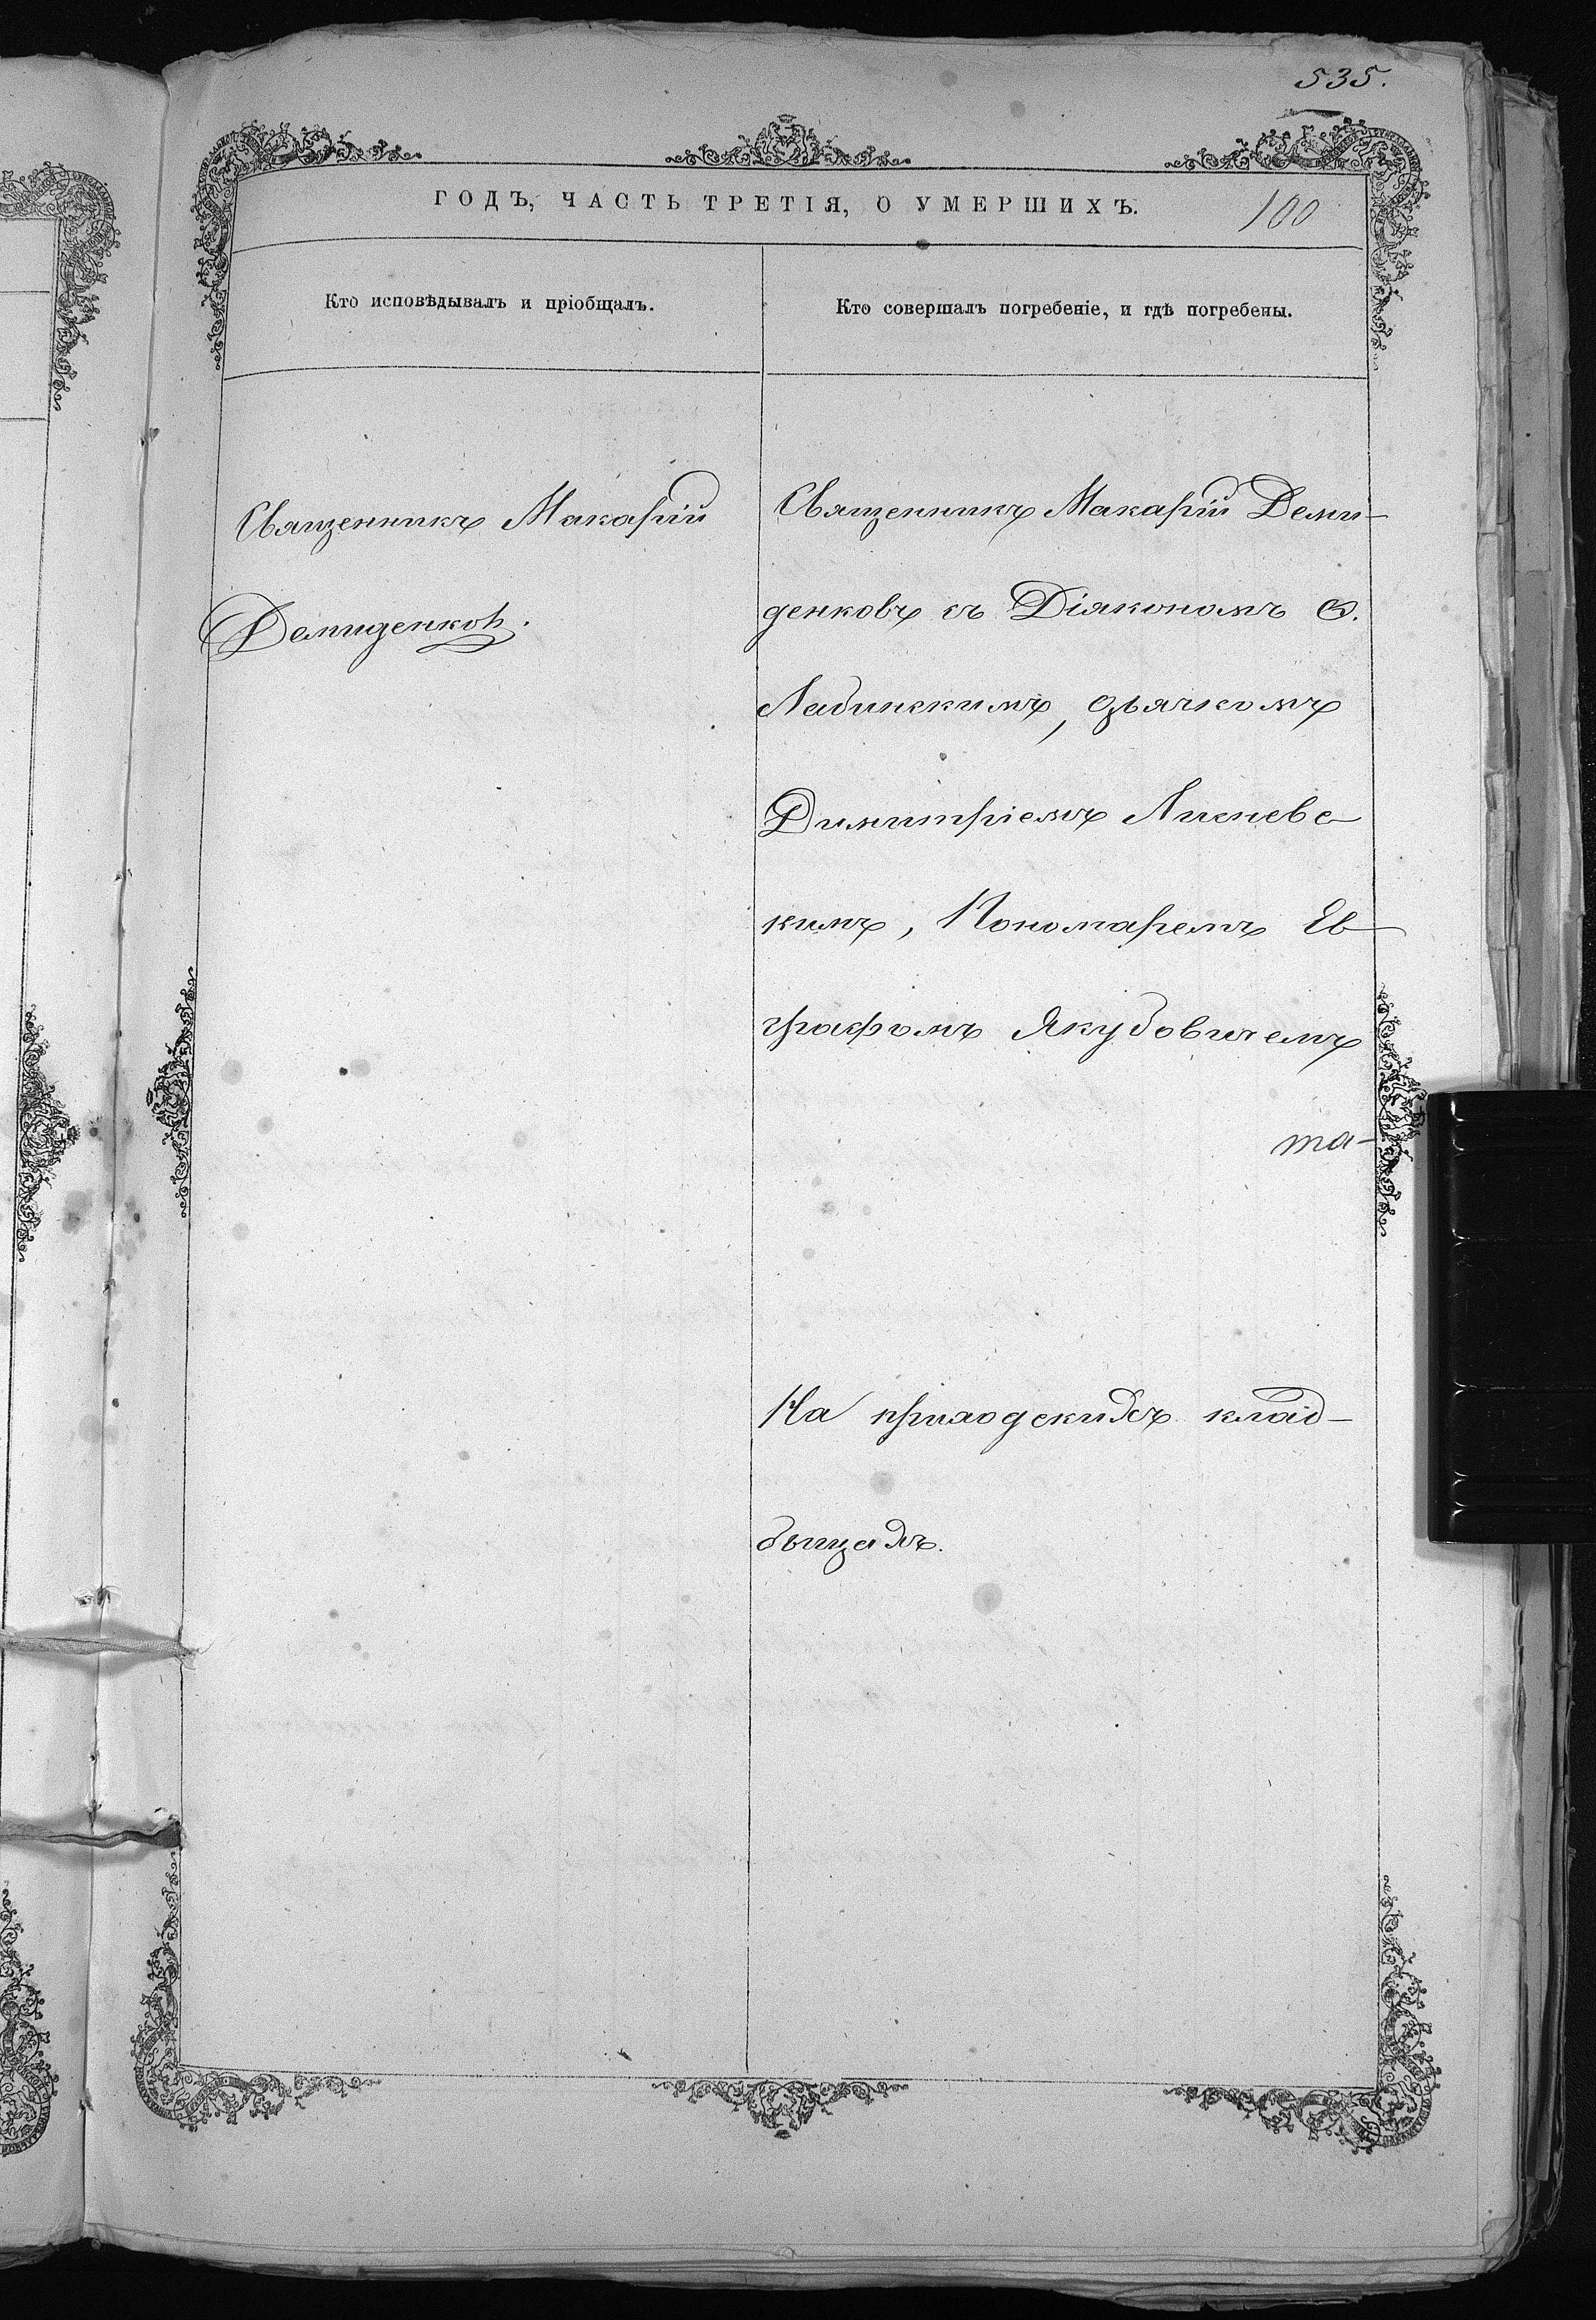 535.
ГОДЪ, ЧАСТЬ ТРЕТІЯ, О УМЕРШИХЪ.
100
Кто исповѣдывалъ и пріобщалъ.
Кто совершалъ погребеніе, и гдѣ погребены.
Священникъ Макарій
Демиденковъ.
Священникъ Макарій Деми-
денковъ съ Діякономъ Ѳ.
Лабинскимъ, дьячкомъ
Димитріемъ
кимъ, Пономаремъ Ев-
графомъ Якубовичемъ
та-
На приходскихъ клад-
бищахъ.